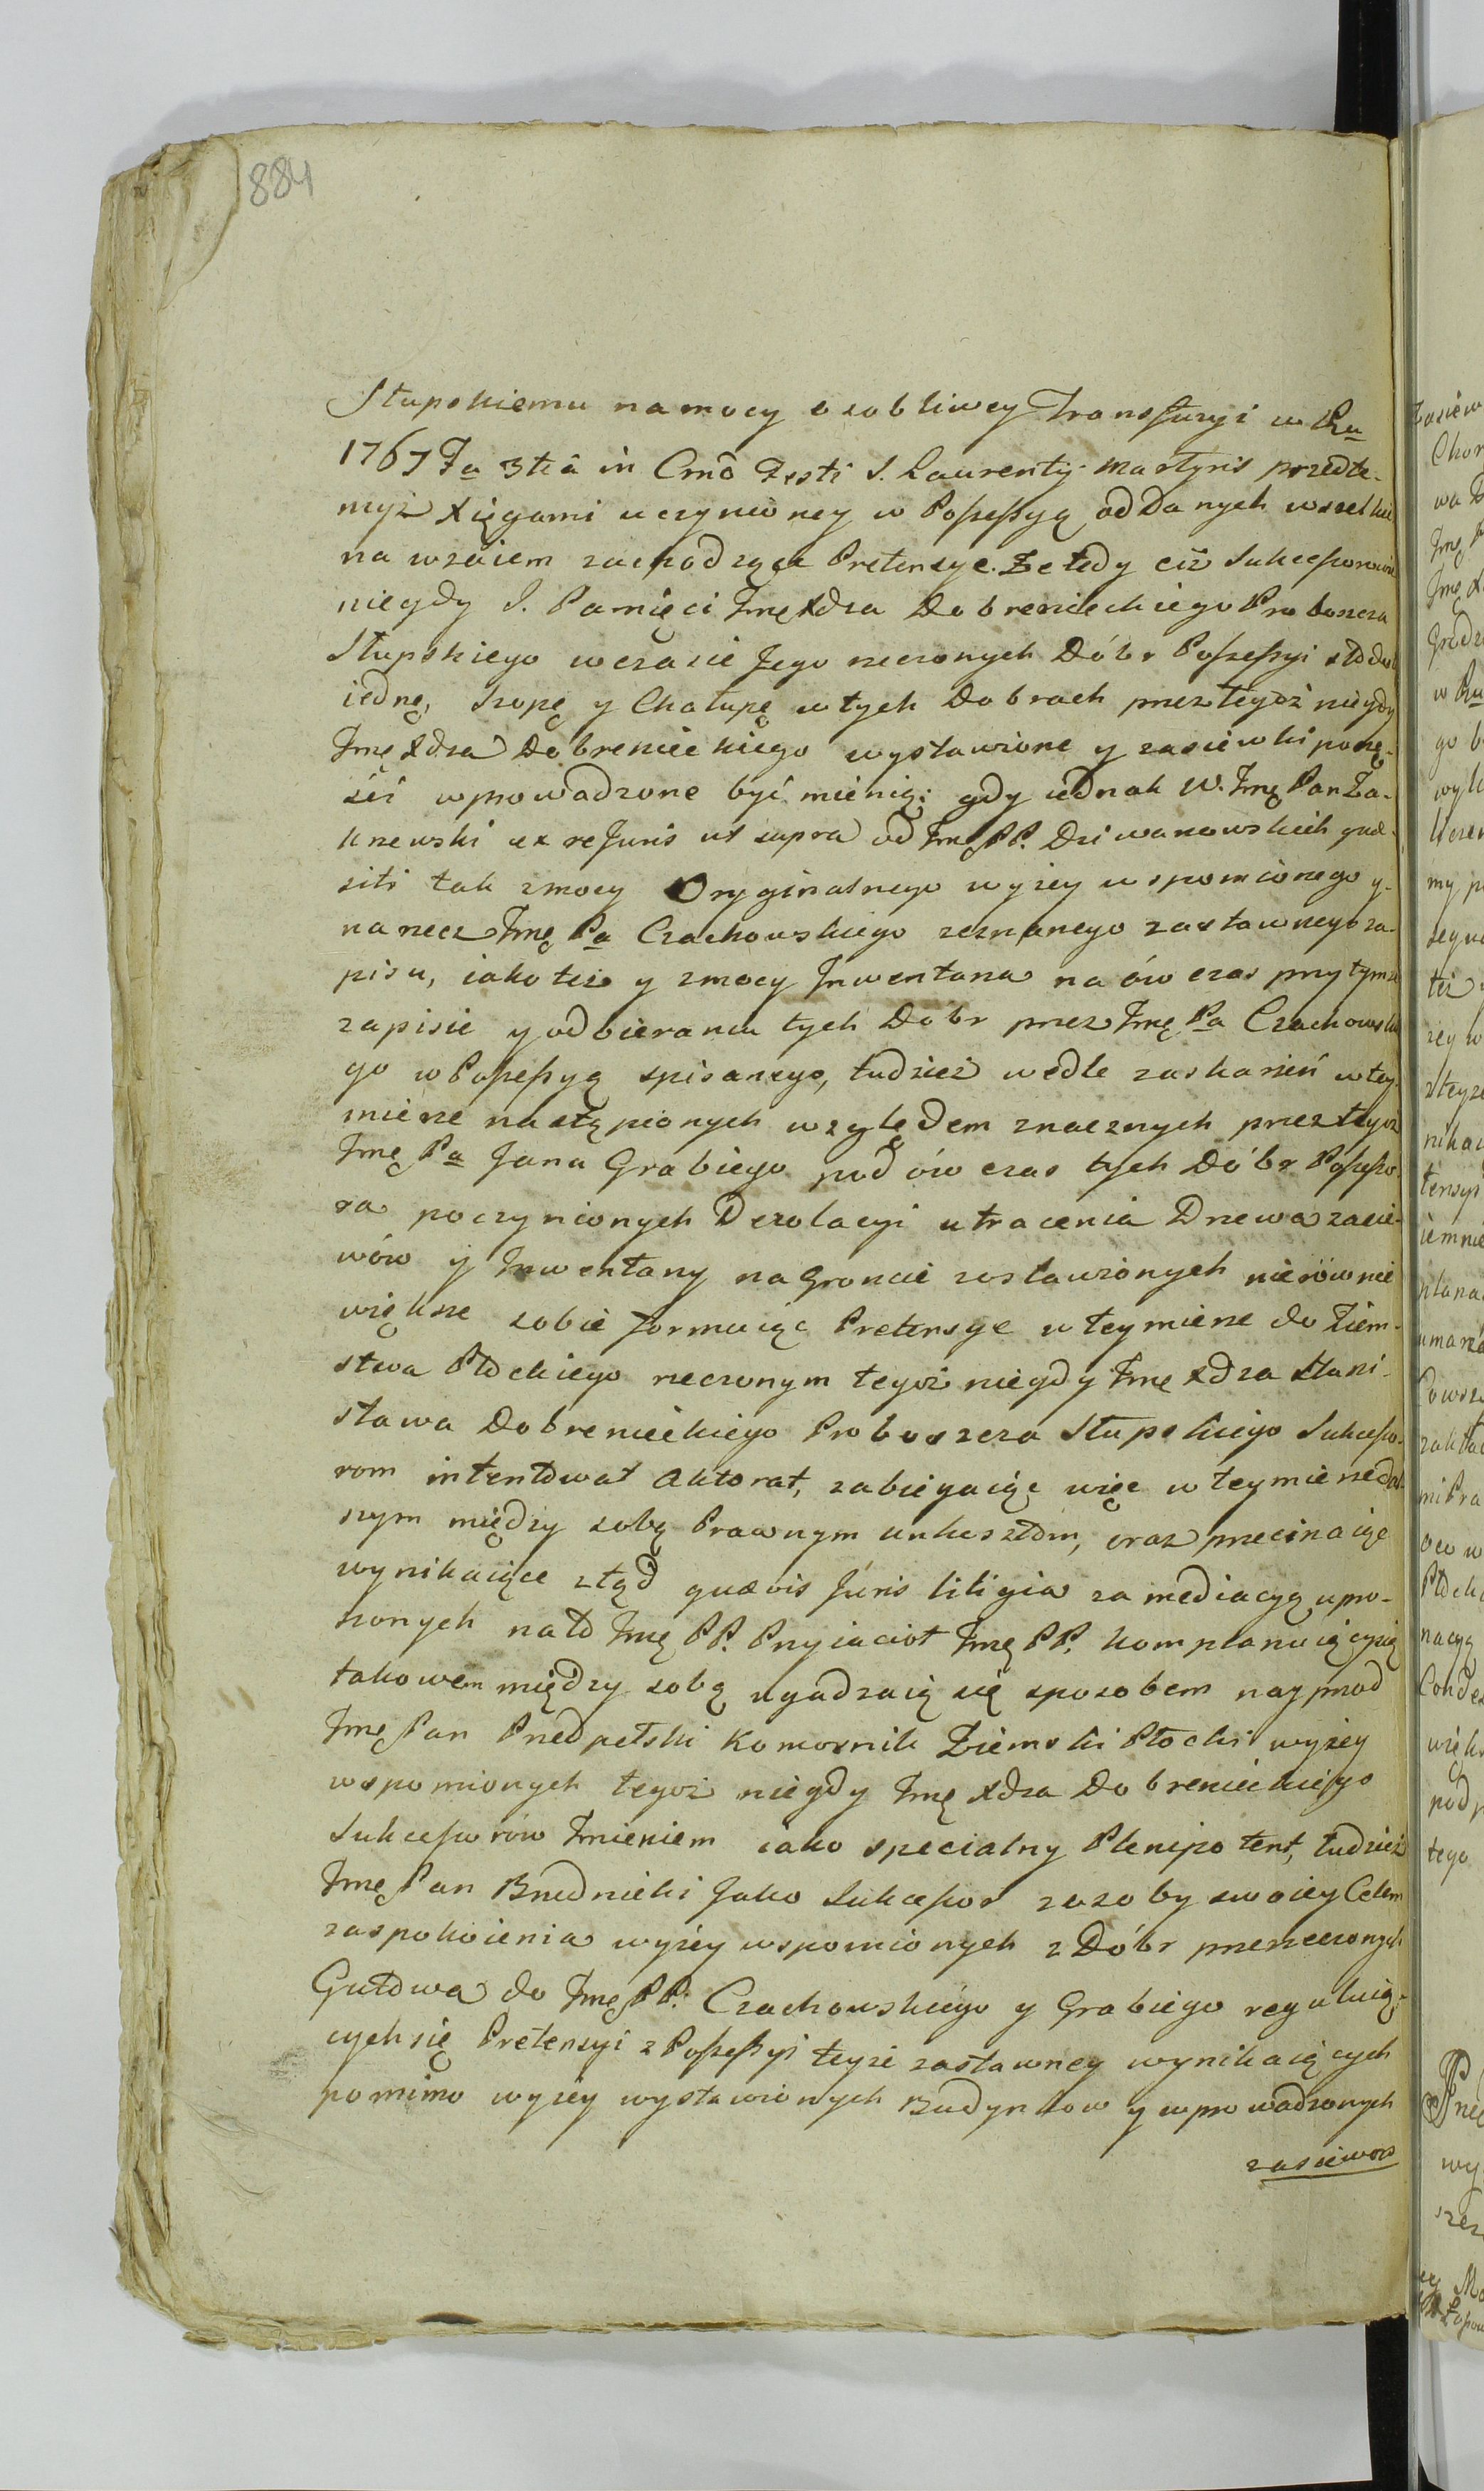 884
Słupskiemu na mocy osobliwey Transfuzyi w Ru
1767 Fa 3tia in Crno Festi S. Laurentij Martyris przedte-
myż Xięgami uczynioney w Possessyą oddanych wszelkie
na wzaiem zachodzące Pretensye. Że tedy ciż Sukcessorowie
niegdy S. Pamięci Jmę Xdza Dobrenieckiego Proboszcza
Słupskiego wczasie Jego rzeczonych Dóbr Possessyi stodoł
iednę, szopę y Chałupę w tych Dobrach przez tegoż niegdy
Jmę Xdza Dobrenieckiego wystawione y zasiewki porzę-
śći wprowadzone być mienią: gdy iednak W. Jmę Pan Za-
krzewski ex re Juris ut supra od Jmę PP. Dziwanowskich quæ-
siti tak zmocy Oryginalnego wyżey wspomionego y-
na rzecz Jmę Pa Czachowskiego zeznanego zastawnego za-
pisu, iako też y zmocy Jnwentarza na ów czas przytymże
zapisie y odbieraniu tych Dóbr przez Jmę Pa Czachowskie
go w Possessyą spisanego, tudzież wedle zaskarżeń w tey
mierze nastąpionych względem znacznych przez tegoż
Jmę Pa Jana Grabiego pod ów czas tych Dóbr Possesso-
ra poczynionych Dezolacyi utracenia Drzewa zasie-
wów y Jnwentarzy na Groncie zostawionych nierównie
większe sobie formuiąc Pretensye w teymierze do Ziem-
stwa Płockiego rzeczonym tegoż niegdy Jmę Xdza Stani-
sława Dobrenieckiego Proboszcza Słupskiego Sukcesso-
rom intentował Aktorat, zabiegaiąc więc w teymierze dal-
szym między sobą Prawnym unkosztom, oraz przecinaiąc
wynikaiące ztąd quævis Juris litigia za mediacyą upro-
szonych na to Jmę PP. Przyiaciół Jmę PP. komplanuiącysię
takowem między sobą ugadzaią się sposobem nayprzod
Jmę Pan Przedpełski Komornik Ziemski Płocki wyżey
wspomionych tegoż niegdy Jmę Xdza Dobrenieckiego
Sukcessorów Jmieniem iako specialny Plenipotent, tudzież
Jmę Pan Brzednicki Jako Sukcessor zosoby swoiey Celem
zaspokoienia wyżey wspomionych z Dóbr przerzeczonych
Gutowa do Jmę PP. Czachowskiego y Grabiego reguluią-
cych się Pretensyi z Possessyi teyże zastawney wynikaiących
pomimo wyżey wystawionych Budynkow y wprowadzonych
zasiewow